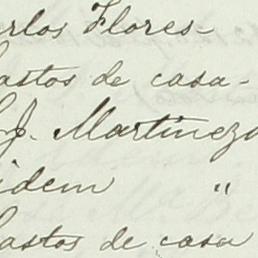 arlos Flores-
Gastos de casa-
J. Martinez
idem "
Gastos de casa